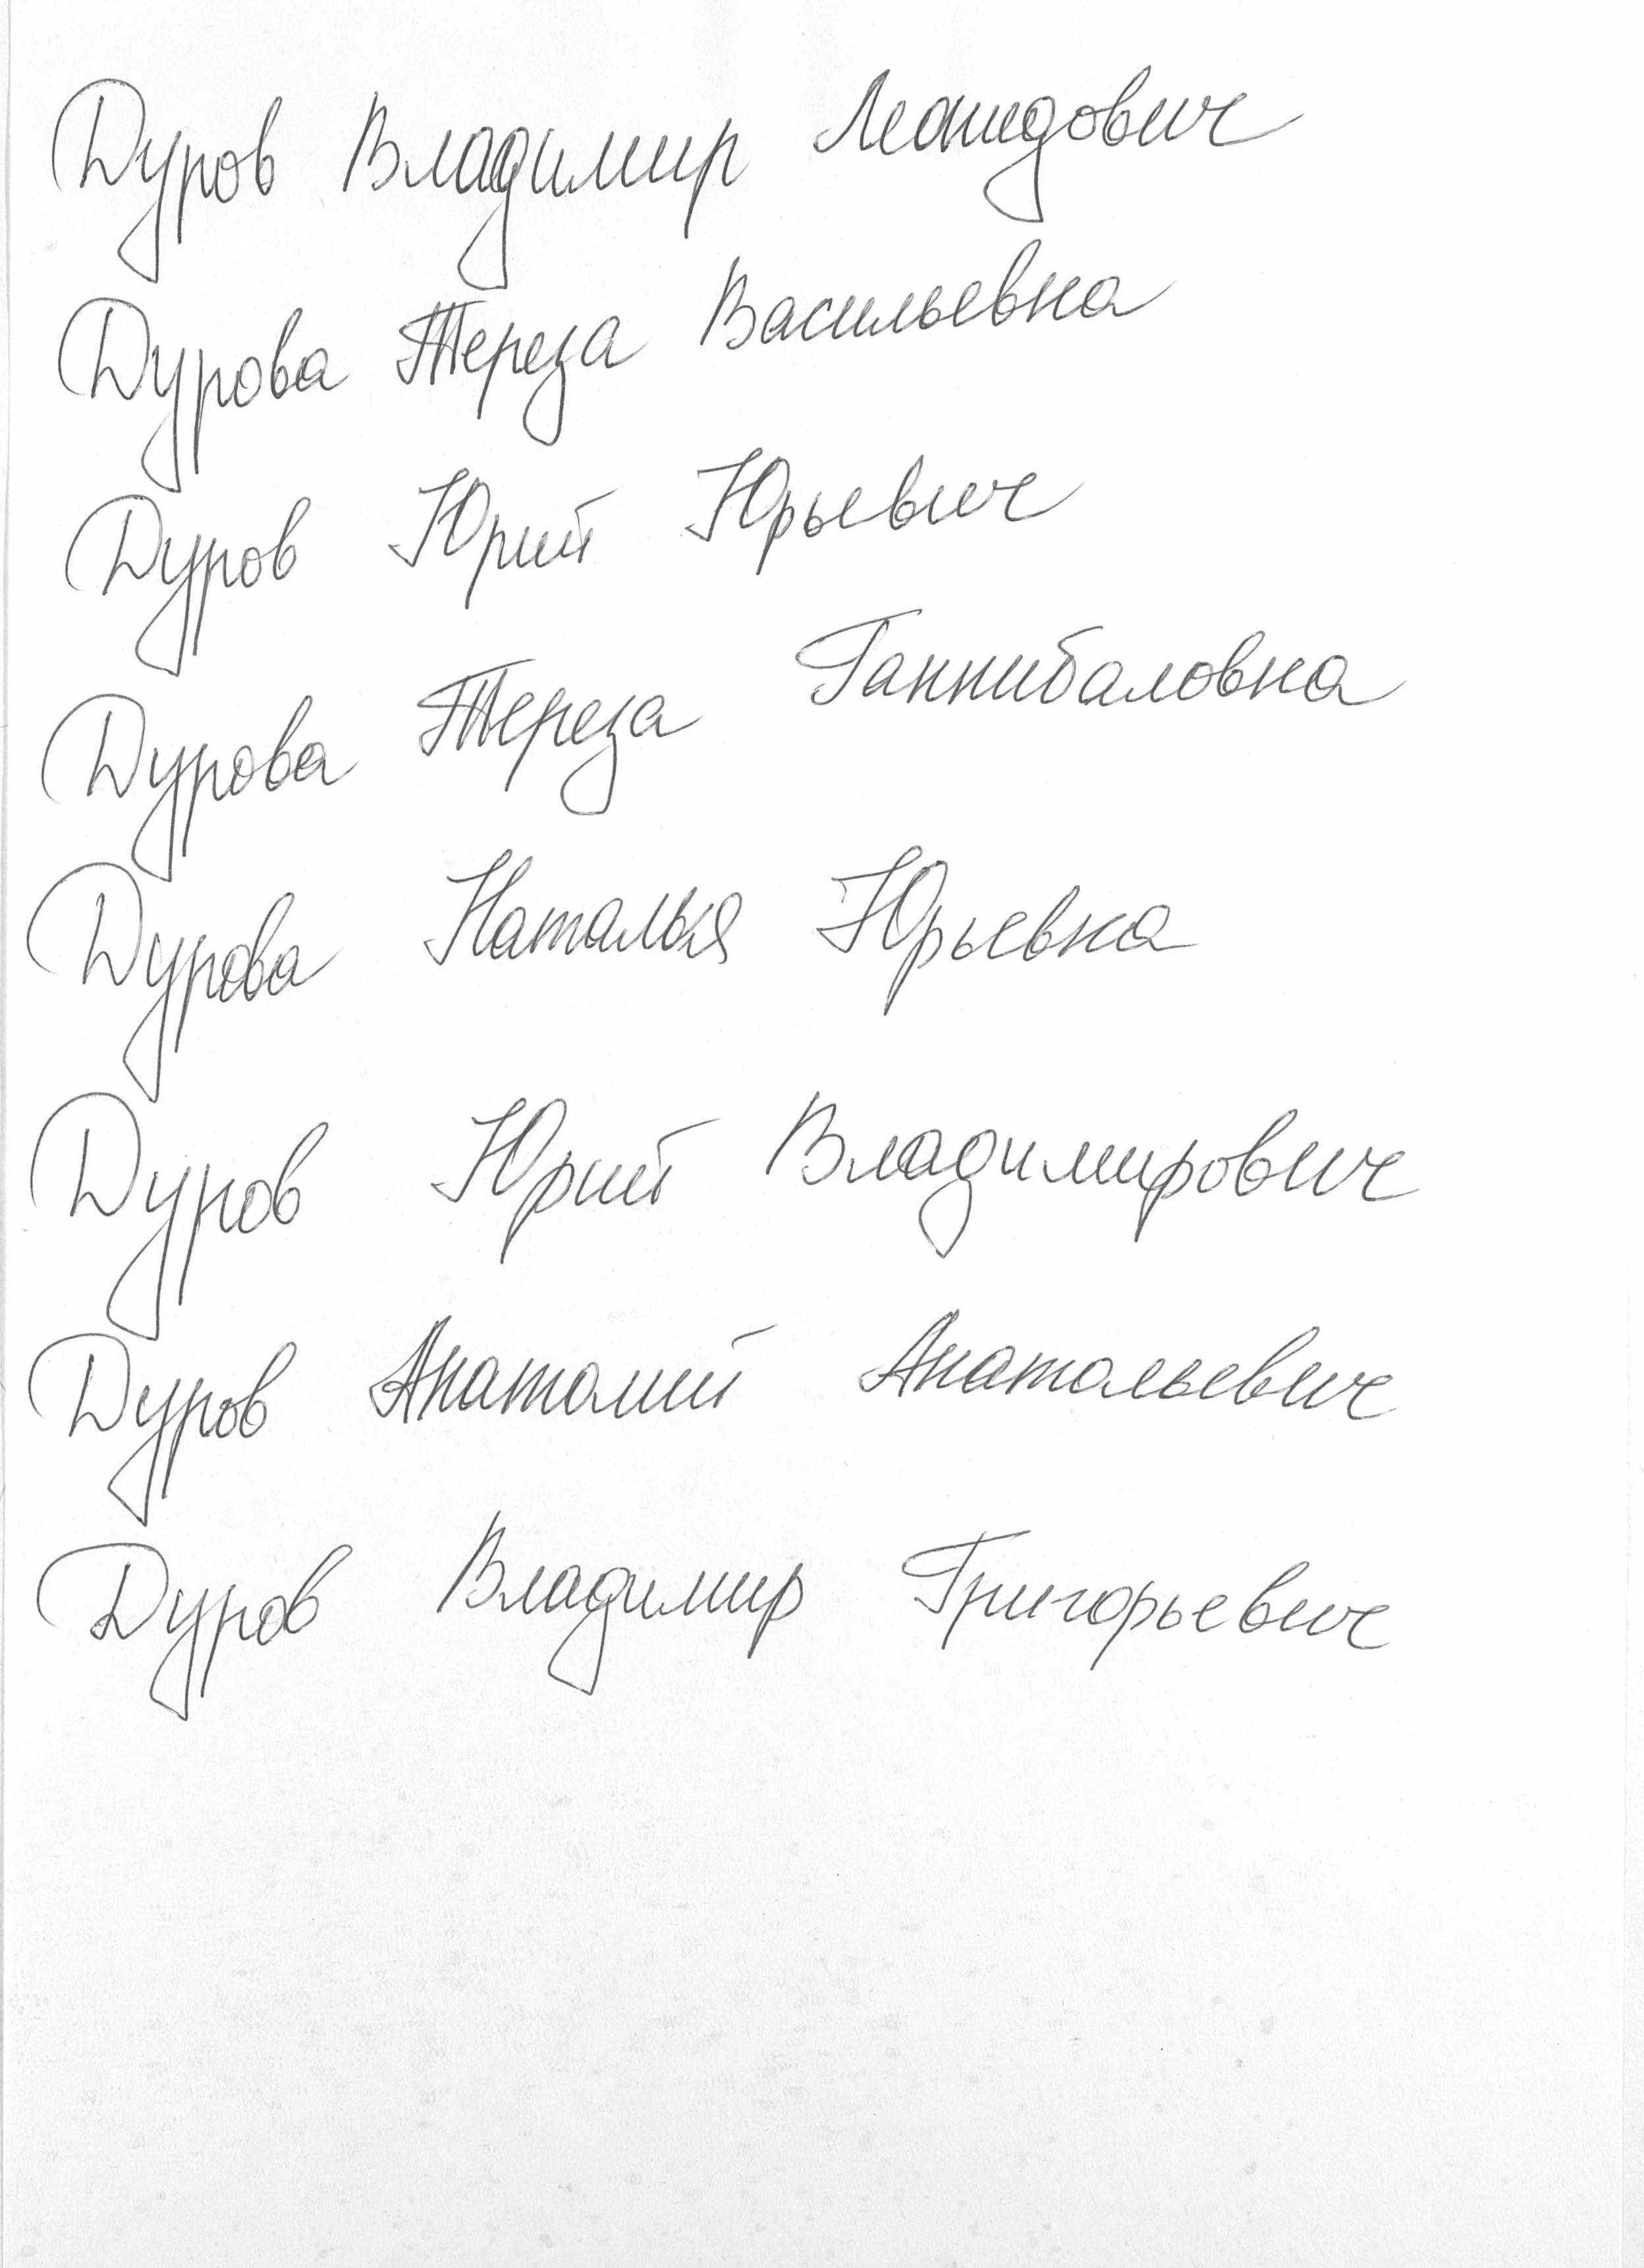 Дуров Владимир Леонидович
Дурова Тереза Васильевна
Дуров Юрий Юрьевич
Дурова Тереза Ганнибаловна
Дурова Наталья Юрьевна
Дуров Юрий Владимирович
Дуров Анатолий Анатольевич
Дуров Владимир Григорьевич